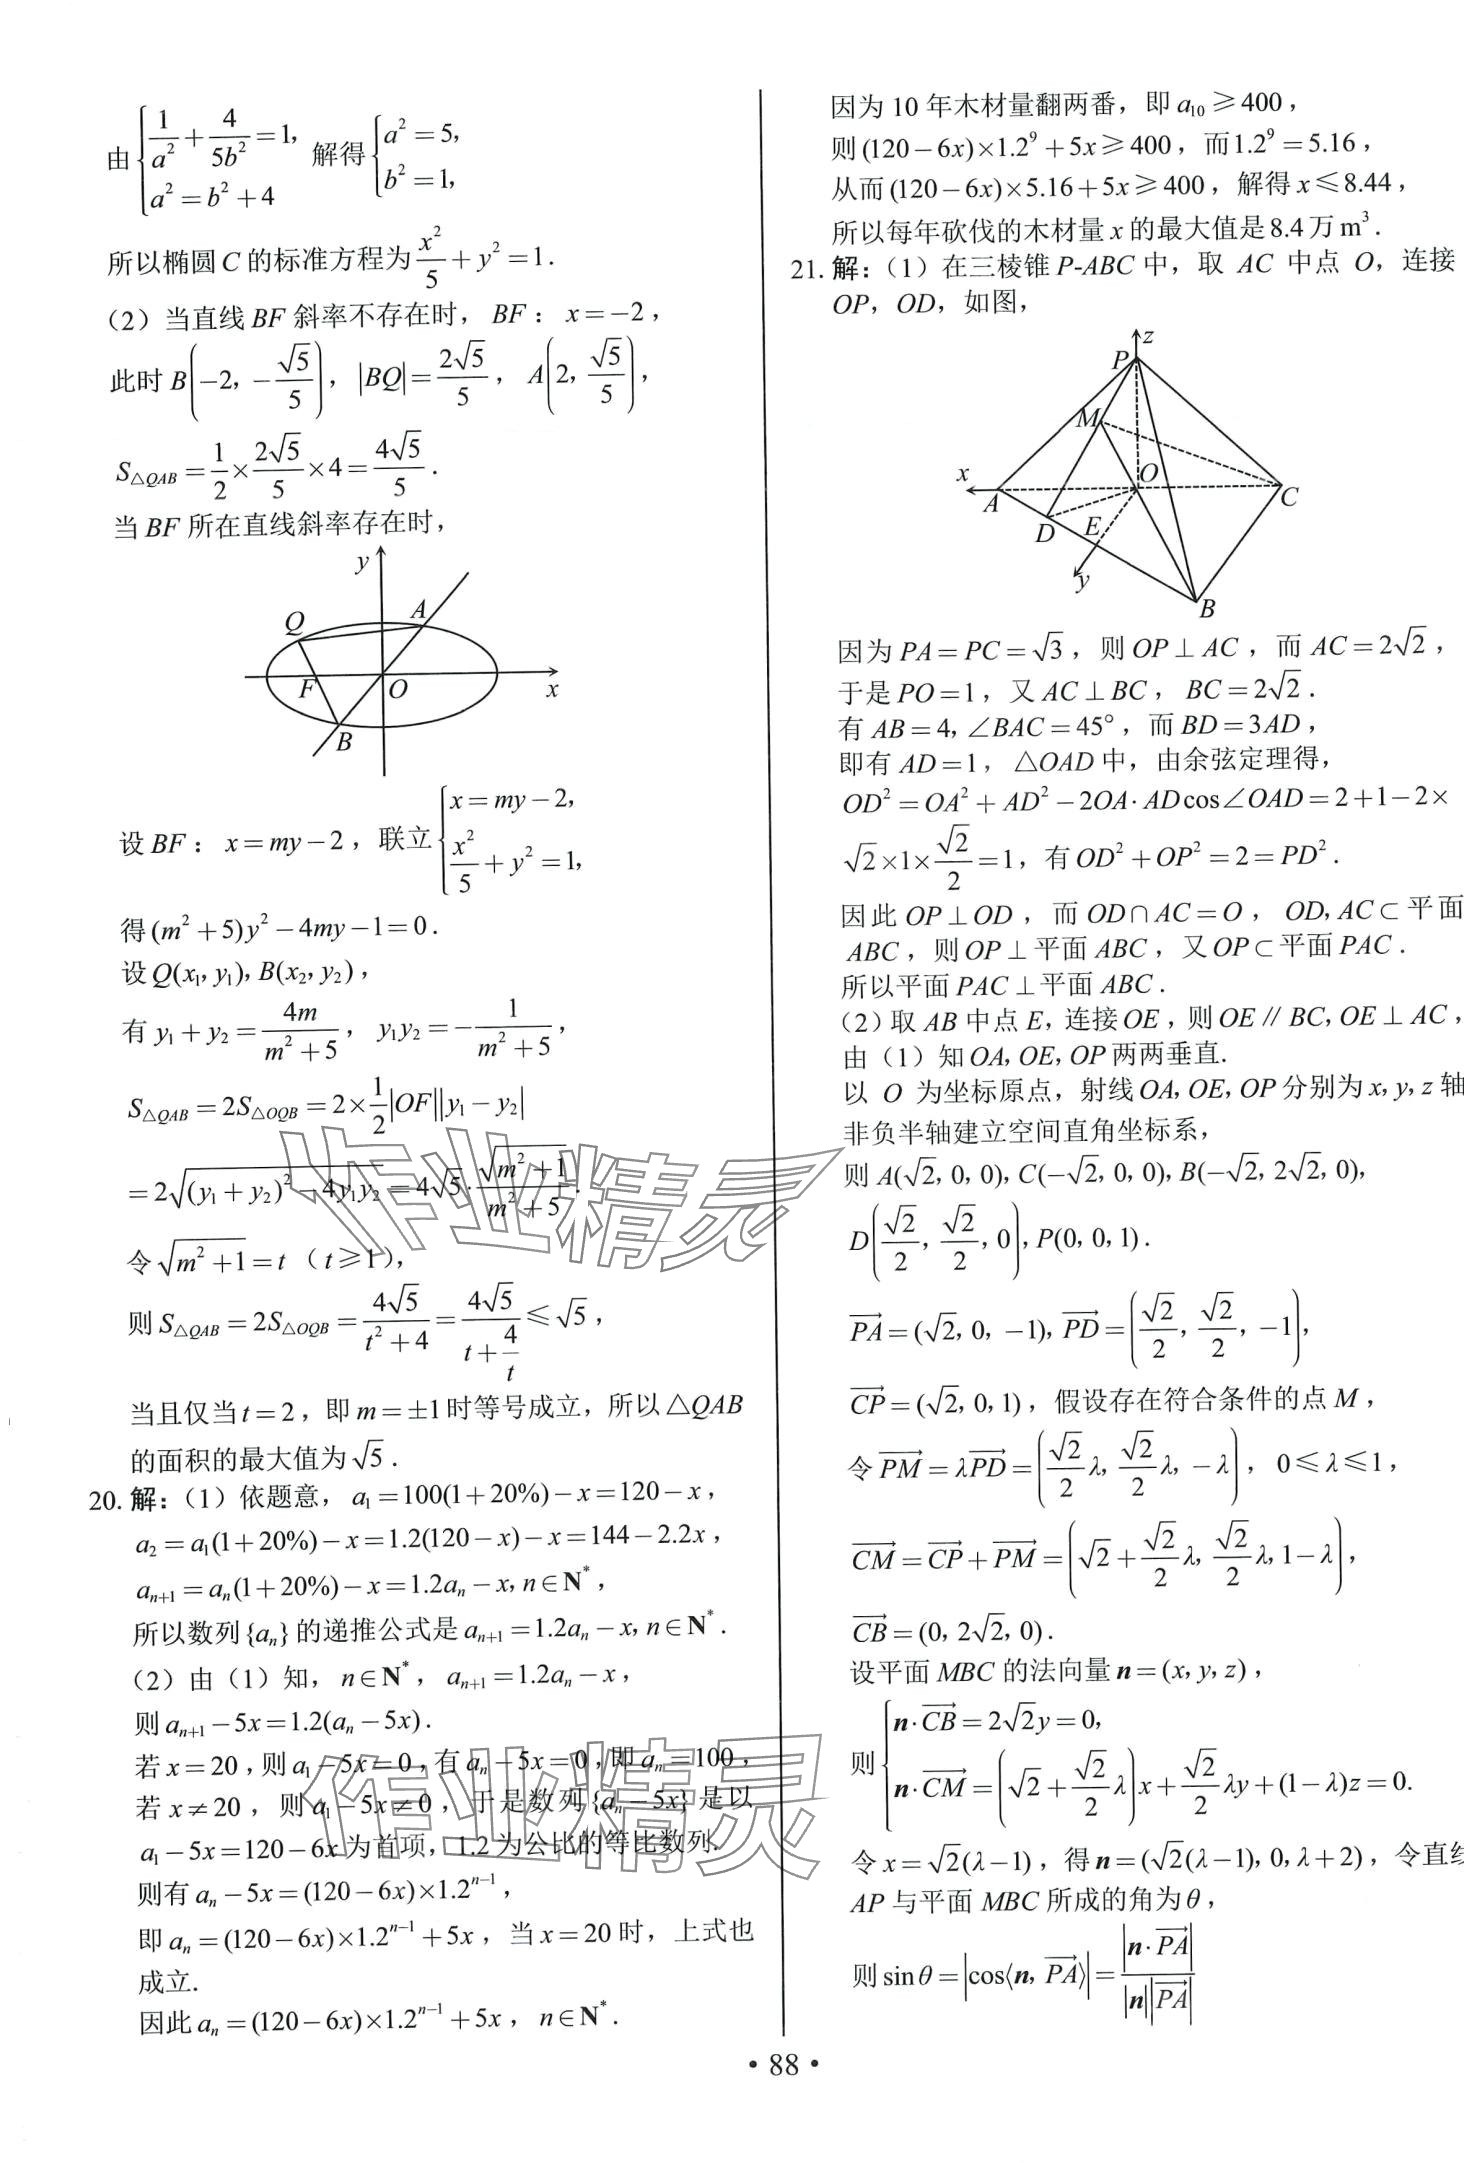 由{1/a²+4/5b²=1, a²=b²+4 解得{a²=5, b²=1,
所以椭圆C的标准方程为x²/5+y²=1.
（2）当直线BF斜率不存在时，BF：x=−2，
此时B(−2, −√5/5)，|BQ|=2√5/5，A(2, √5/5)，
S△QAB=1/2×2√5/5×4=4√5/5.
当BF所在直线斜率存在时，
y
Q A
F O x
B
设BF：x=my−2，联立{x=my−2, x²/5+y²=1,
得(m²+5)y²−4my−1=0.
设Q(x₁, y₁), B(x₂, y₂)，
有y₁+y₂=4m/(m²+5)，y₁y₂=−1/(m²+5)，
S△QAB=2S△OQB=2×1/2|OF||y₁−y₂|
=2√((y₁+y₂)²−4y₁y₂)=4√5·√(m²+1)/(m²+5).
令√(m²+1)=t（t≥1），
则S△QAB=2S△OQB=4√5t/(t²+4)=4√5/(t+4/t)≤√5，
当且仅当t=2，即m=±1时等号成立，所以△QAB
的面积的最大值为√5.
20. 解：（1）依题意，a₁=100(1+20%)−x=120−x，
a₂=a₁(1+20%)−x=1.2(120−x)−x=144−2.2x，
aₙ₊₁=aₙ(1+20%)−x=1.2aₙ−x, n∈N*，
所以数列{aₙ}的递推公式是aₙ₊₁=1.2aₙ−x, n∈N*.
（2）由（1）知，n∈N*，aₙ₊₁=1.2aₙ−x，
则aₙ₊₁−5x=1.2(aₙ−5x).
若x=20，则a₁−5x=0，有aₙ−5x=0，即aₙ=100，
若x≠20，则a₁−5x≠0，于是数列{aₙ−5x}是以
a₁−5x=120−6x为首项，1.2为公比的等比数列.
则有aₙ−5x=(120−6x)×1.2ⁿ⁻¹，
即aₙ=(120−6x)×1.2ⁿ⁻¹+5x，当x=20时，上式也
成立.
因此aₙ=(120−6x)×1.2ⁿ⁻¹+5x，n∈N*.
因为10年木材量翻两番，即a₁₀≥400，
则(120−6x)×1.2⁹+5x≥400，而1.2⁹=5.16，
从而(120−6x)×5.16+5x≥400，解得x≤8.44，
所以每年砍伐的木材量x的最大值是8.4万m³.
21. 解：（1）在三棱锥P-ABC中，取AC中点O，连接
OP，OD，如图，
z
P
M
x A O C
D E
y
B
因为PA=PC=√3，则OP⊥AC，而AC=2√2，
于是PO=1，又AC⊥BC，BC=2√2.
有AB=4, ∠BAC=45°，而BD=3AD，
即有AD=1，△OAD中，由余弦定理得，
OD²=OA²+AD²−2OA·ADcos∠OAD=2+1−2×
√2×1×√2/2=1，有OD²+OP²=2=PD².
因此OP⊥OD，而OD∩AC=O，OD, AC⊂平面
ABC，则OP⊥平面ABC，又OP⊂平面PAC.
所以平面PAC⊥平面ABC.
（2）取AB中点E，连接OE，则OE∥BC, OE⊥AC，
由（1）知OA, OE, OP两两垂直.
以O为坐标原点，射线OA, OE, OP分别为x, y, z轴
非负半轴建立空间直角坐标系，
则A(√2, 0, 0), C(−√2, 0, 0), B(−√2, 2√2, 0),
D(√2/2, √2/2, 0), P(0, 0, 1).
PA→=(√2, 0, −1), PD→=(√2/2, √2/2, −1),
CP→=(√2, 0, 1)，假设存在符合条件的点M，
令PM→=λPD→=(√2/2λ, √2/2λ, −λ)，0≤λ≤1，
CM→=CP→+PM→=(√2+√2/2λ, √2/2λ, 1−λ)，
CB→=(0, 2√2, 0).
设平面MBC的法向量n=(x, y, z)，
则{n·CB→=2√2y=0, n·CM→=(√2+√2/2λ)x+√2/2λy+(1−λ)z=0.
令x=√2(λ−1)，得n=(√2(λ−1), 0, λ+2)，令直线
AP与平面MBC所成的角为θ，
则sinθ=|cos⟨n, PA→⟩|=|n·PA→|/|n||PA→|
作业精灵
作业精灵
• 88 •